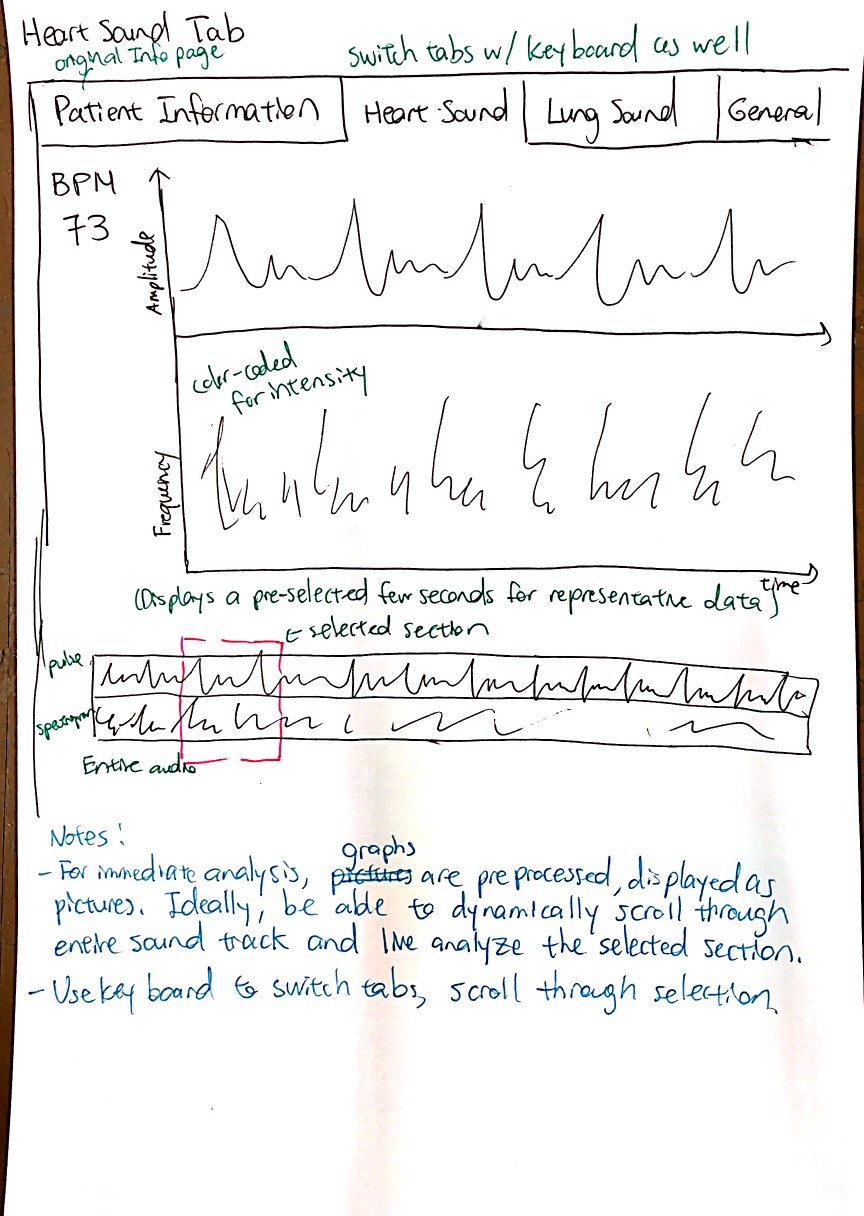 Heart Sound Tab
original Info page
switch tabs w/ keyboard as well
Patient Information
Heart Sound
Lung Sound
General
BPM
73
Amplitude
color-coded
for intensity
Frequency
time
(Displays a pre-selected few seconds for representative data)
← selected section
pulse
spectrogram
Entire audio
Notes:
graphs
- For immediate analysis, pictures are preprocessed, displayed as
pictures. Ideally, be able to dynamically scroll through
entire sound track and live analyze the selected section.
- Use key board to switch tabs, scroll through selection